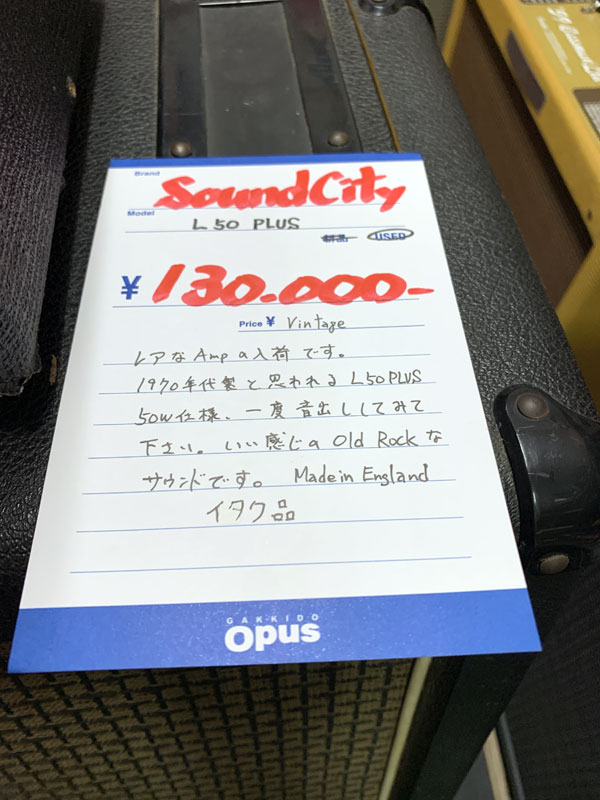 Brand
SoundCity
Model
L50 PLUS
新品 USED
¥130.000-
Price ¥ Vintage
レアなAmpの入荷です。
1970年代製と思われるL50PLUS
50W仕様、一度音出ししてみて
下さい。いい感じのOld Rockな
サウンドです。 Made in England
イタク品
GAKKIDO
Opus